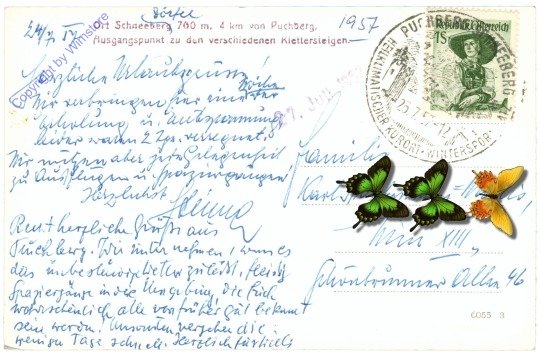 Dörfel
24/7 57 Ort Schneeberg 700 m, 4 km von Puchberg,
1957
Ausgangspunkt zu den verschiedenen Klettersteigen.
Copyright by Winstore
Herzliche Urlaubsgrüsse!
Wir verbringen hier eine Woche
Erholung u. Entspannung
leider waren 2 Tge. verregnet.
Wir nützen aber jede Gelegenheit
zu Ausflügen u. Spaziergängen
Herzlichst
Recht herzliche Grüße aus
Puchberg. Wir unternehmen, wenn es
das unbeständige Wetter zuläßt, fleißig
Spaziergänge in die Umgebung, die Euch
wahrscheinlich alle von früher gut bekannt
sein werden. Ansonsten vergehen die
wenigen Tage schnell. Herzlichst
PUCHBERG SCHNEEBERG
HEILKLIMATISCHER KURORT-WINTERSPORT
Republik Österreich
1S
Familie
Karl
Wien XIII,
Schönbrunner Allee 46
6055 3